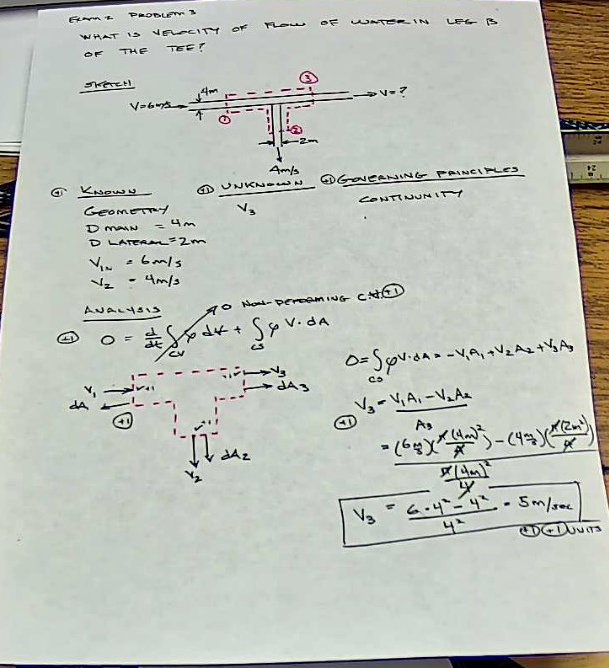 EXAM 2 PROBLEM 3
WHAT IS VELOCITY OF FLOW OF WATER IN LEG B
OF THE TEE?
SKETCH
V=6m/s
4m
①
②
③
V=?
2m
4m/s
+1 KNOWN
GEOMETRY
D MAIN = 4m
D LATERAL = 2m
V_IN = 6m/s
V₂ = 4m/s
+1 UNKNOWN
V₃
+1 GOVERNING PRINCIPLES
CONTINUNITY
ANALYSIS
0 NON-DEFORMING C.V. +1
+1 0 = d/dt ∫_CV ρ dV + ∫_CS ρ V·dA
V₁
dA
+1
V₃
dA₃
V₂
dA₂
0 = ∫_CS ρV·dA = -V₁A₁ + V₂A₂ + V₃A₃
+1 V₃ = (V₁A₁ - V₂A₂) / A₃
= ((6 m/s)(π(4m)²/4) - (4 m/s)(π(2m²)/4)) / (π(4m)²/4)
V₃ = (6·4² - 4²) / 4² = 5 m/sec
+1 +1 UNITS